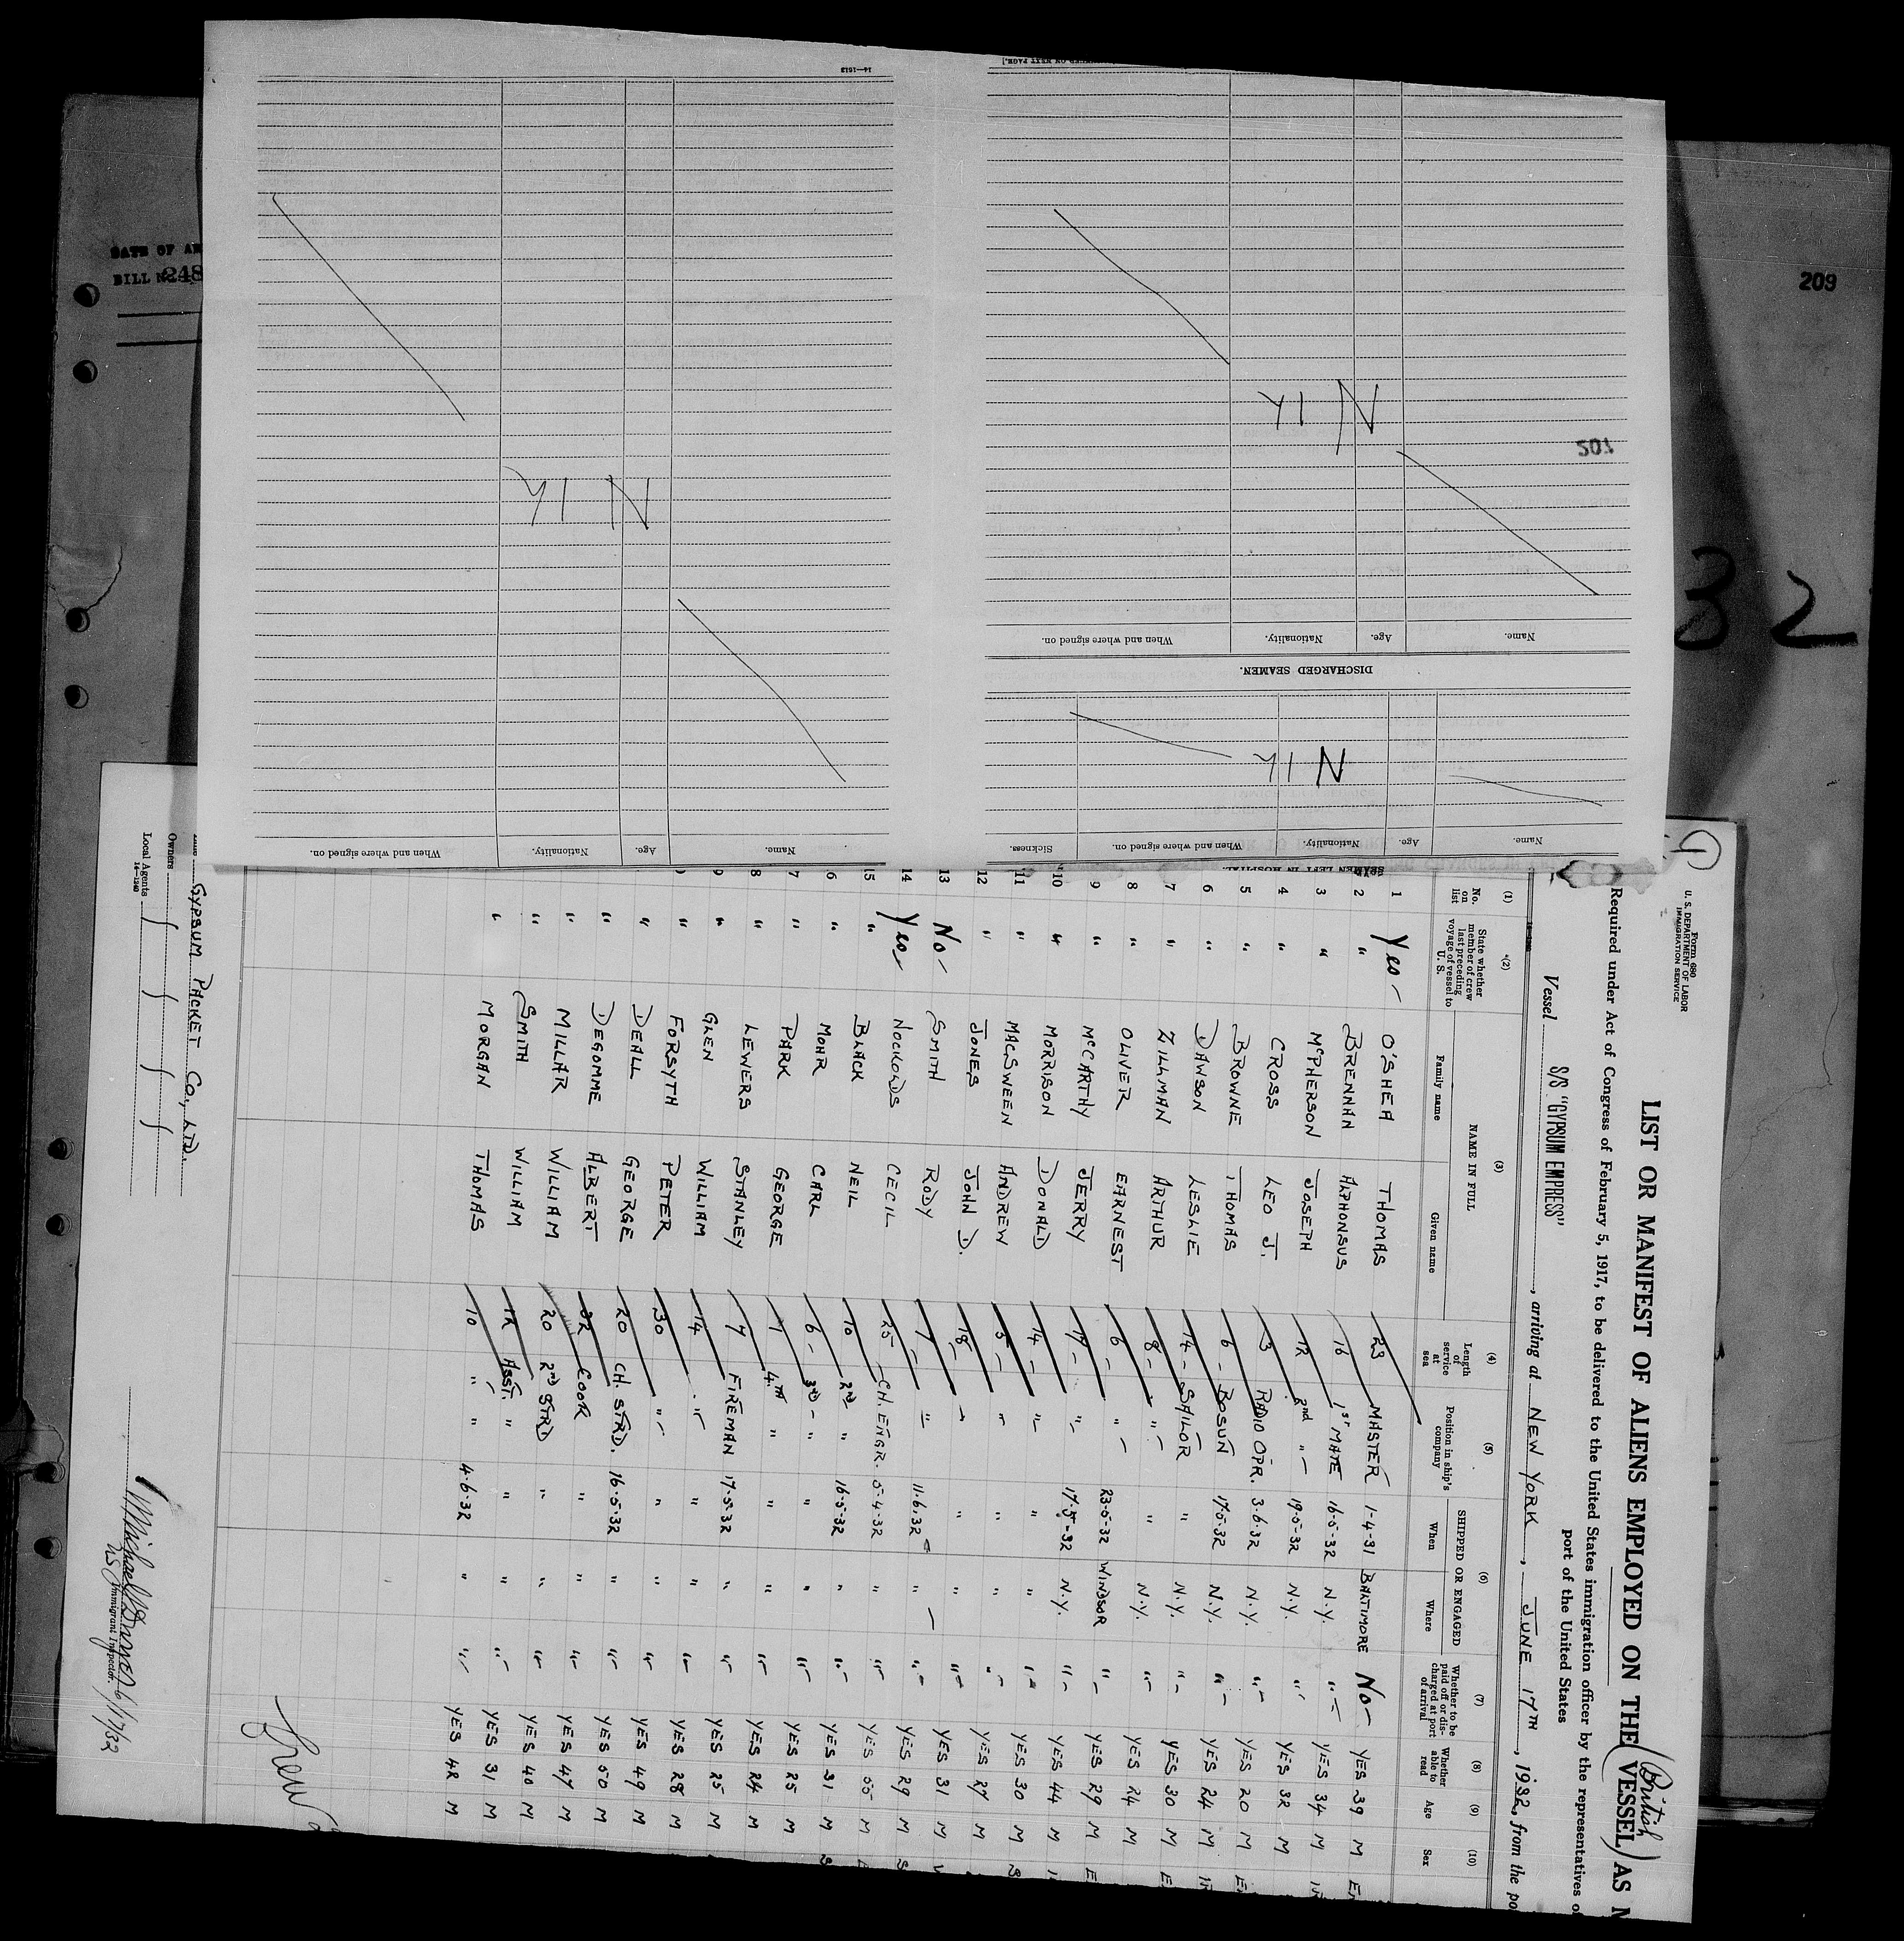 209
32
DATE OF AR
BILL NO. 248
14—1613
NIL
Name. Age. Nationality. When and where signed on.
NEXT PAGE.]
NIL
201
Name. Age. Nationality. When and where signed on.
DISCHARGED SEAMEN.
NIL
Name. Age. Nationality. When and where signed on. Sickness.
SEAMEN LEFT IN HOSPITAL.
Form 680
U. S. DEPARTMENT OF LABOR
IMMIGRATION SERVICE
(British)
LIST OR MANIFEST OF ALIENS EMPLOYED ON THE VESSEL AS M
Required under Act of Congress of February 5, 1917, to be delivered to the United States immigration officer by the representatives of
port of the United States
Vessel S/S "GYPSUM EMPRESS", arriving at NEW YORK, JUNE 17TH, 1932, from the po
(1) (2) (3) (4) (5) (6) (7) (8) (9) (10)
No. on list State whether member of crew last preceding voyage of vessel to U. S. NAME IN FULL Family name Given name Length of service at sea Position in ship's company SHIPPED OR ENGAGED When Where Whether to be paid off or discharged at port of arrival Whether able to read Age Sex
1 Yes- O'SHEA THOMAS 23 MASTER 1-4-31 BATIMORE No- YES 39 M
2 " BRENNAN ALPHONSUS 16 1ST MATE 16-5-32 N.Y. " YES 34 M
3 " McPHERSON JOSEPH 12 2nd " 19-5-32 N.Y. " YES 32 M
4 " CROSS LEO J. 3 RADIO OPR. 3-6-32 N.Y. " YES 20 M
5 " BROWNE THOMAS 6 BOSUN 17-5-32 N.Y. " YES 24 M
6 " DAWSON LESLIE 14 SAILOR " N.Y. " YES 30 M
7 " ZILLMAN ARTHUR 8 " " N.Y. " YES 24 M
8 " OLIVER EARNEST 6 " 23-5-32 WINDSOR " YES 29 M
9 " McCARTHY JERRY 17 " 17-5-32 N.Y. " YES 44 M
10 " MORRISON DONALD 14 " " " " YES 30 M
11 " MACSWEEN ANDREW 3 " " " " YES 27 M
12 " JONES JOHN D. 18 " " " " YES 31 M
13 No- SMITH RODY 7 " 11.6.32 " " YES 29 M
14 Yes- NOCKOLDS CECIL 25 CH. ENGR. 5-4-32 " " YES 55 M
15 " BLACK NEIL 10 2ND " 16-5-32 " " YES 31 M
6 " MOHR CARL 6 3RD " " " " YES 25 M
7 " PARK GEORGE 7 4TH " " " " YES 24 M
8 " LEWERS STANLEY 7 FIREMAN 17-5-32 " " YES 25 M
9 " GLEN WILLIAM 14 " " " " YES 28 M
" FORSYTH PETER 30 " " " " YES 49 M
" DEALL GEORGE 20 CH. STRD. 16-5-32 " " YES 50 M
" DEGOMME ALBERT 32 COOK " " " YES 47 M
" MILLAR WILLIAM 20 2ND STRD " " " YES 40 M
" SMITH WILLIAM 12 ASST. " " " " YES 31 M
" MORGAN THOMAS 10 " " 4-6-32 " " YES 42 M
Owners GYPSUM PACKET CO., LTD.
Local Agents
14—1240
6/17/32
US Immigrant Inspector.